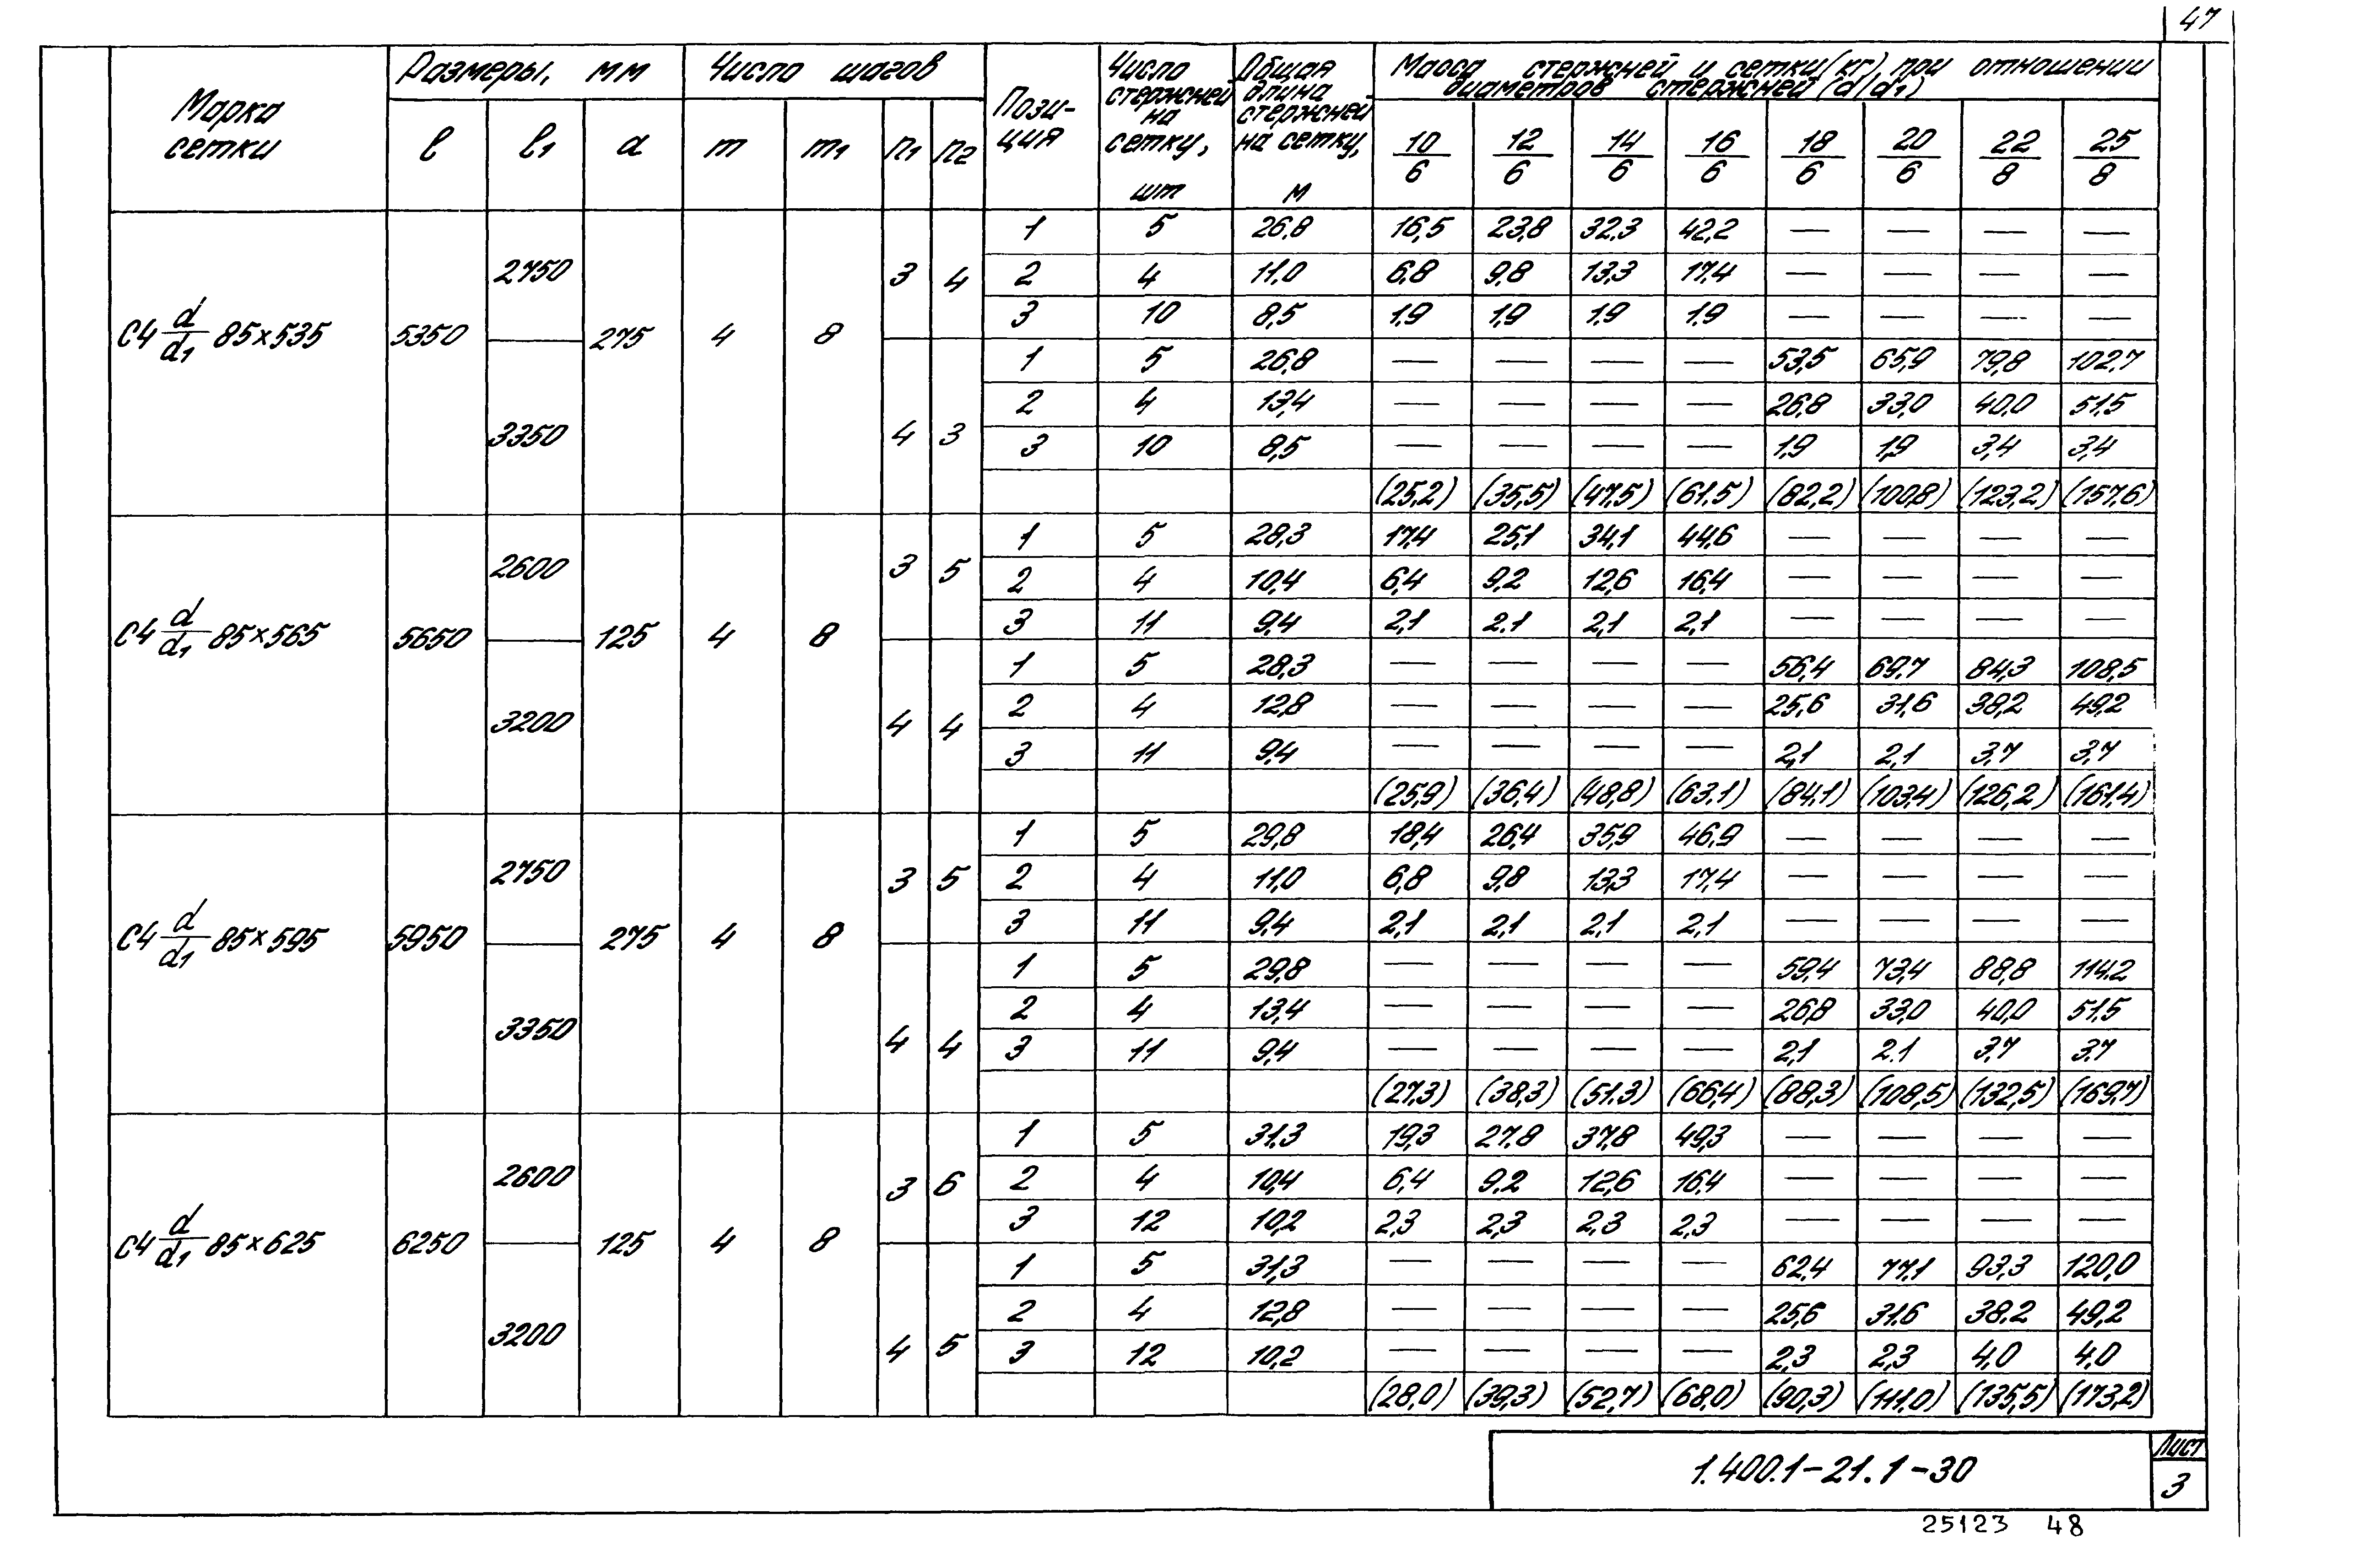 47
Марка сетки | Размеры, мм | Число шагов | Пози-ция | Число стержней на сетку, шт | Общая длина стержней на сетку, м | Масса стержней и сетки (кг), при отношении диаметров стержней (d/d1)
l | l1 | a | m | m1 | n1 | n2 | 10/6 | 12/6 | 14/6 | 16/6 | 18/6 | 20/6 | 22/8 | 25/8
С4 d/d1 85×535 | 5350 | 275 | 4 | 8
2750 | 3 | 4
1 | 5 | 26,8 | 16,5 | 23,8 | 32,3 | 42,2 | — | — | — | —
2 | 4 | 11,0 | 6,8 | 9,8 | 13,3 | 17,4 | — | — | — | —
3 | 10 | 8,5 | 1,9 | 1,9 | 1,9 | 1,9 | — | — | — | —
3350 | 4 | 3
1 | 5 | 26,8 | — | — | — | — | 53,5 | 65,9 | 79,8 | 102,7
2 | 4 | 13,4 | — | — | — | — | 26,8 | 33,0 | 40,0 | 51,5
3 | 10 | 8,5 | — | — | — | — | 1,9 | 1,9 | 3,4 | 3,4
(25,2) | (35,5) | (47,5) | (61,5) | (82,2) | (100,8) | (123,2) | (157,6)
С4 d/d1 85×565 | 5650 | 125 | 4 | 8
2600 | 3 | 5
1 | 5 | 28,3 | 17,4 | 25,1 | 34,1 | 44,6 | — | — | — | —
2 | 4 | 10,4 | 6,4 | 9,2 | 12,6 | 16,4 | — | — | — | —
3 | 11 | 9,4 | 2,1 | 2,1 | 2,1 | 2,1 | — | — | — | —
3200 | 4 | 4
1 | 5 | 28,3 | — | — | — | — | 56,4 | 69,7 | 84,3 | 108,5
2 | 4 | 12,8 | — | — | — | — | 25,6 | 31,6 | 38,2 | 49,2
3 | 11 | 9,4 | — | — | — | — | 2,1 | 2,1 | 3,7 | 3,7
(25,9) | (36,4) | (48,8) | (63,1) | (84,1) | (103,4) | (126,2) | (161,4)
С4 d/d1 85×595 | 5950 | 275 | 4 | 8
2750 | 3 | 5
1 | 5 | 29,8 | 18,4 | 26,4 | 35,9 | 46,9 | — | — | — | —
2 | 4 | 11,0 | 6,8 | 9,8 | 13,3 | 17,4 | — | — | — | —
3 | 11 | 9,4 | 2,1 | 2,1 | 2,1 | 2,1 | — | — | — | —
3350 | 4 | 4
1 | 5 | 29,8 | — | — | — | — | 59,4 | 73,4 | 88,8 | 114,2
2 | 4 | 13,4 | — | — | — | — | 26,8 | 33,0 | 40,0 | 51,5
3 | 11 | 9,4 | — | — | — | — | 2,1 | 2,1 | 3,7 | 3,7
(27,3) | (38,3) | (51,3) | (66,4) | (88,3) | (108,5) | (132,5) | (169,7)
С4 d/d1 85×625 | 6250 | 125 | 4 | 8
2600 | 3 | 6
1 | 5 | 31,3 | 19,3 | 27,8 | 37,8 | 49,3 | — | — | — | —
2 | 4 | 10,4 | 6,4 | 9,2 | 12,6 | 16,4 | — | — | — | —
3 | 12 | 10,2 | 2,3 | 2,3 | 2,3 | 2,3 | — | — | — | —
3200 | 4 | 5
1 | 5 | 31,3 | — | — | — | — | 62,4 | 77,1 | 93,3 | 120,0
2 | 4 | 12,8 | — | — | — | — | 25,6 | 31,6 | 38,2 | 49,2
3 | 12 | 10,2 | — | — | — | — | 2,3 | 2,3 | 4,0 | 4,0
(28,0) | (39,3) | (52,7) | (68,0) | (90,3) | (111,0) | (135,5) | (173,2)
1.400.1-21.1-30
Лист
3
25123 48